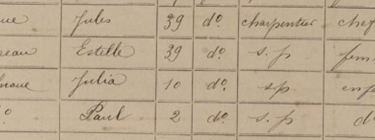 ue Jules 39 do charpentier chef
eau Estelle 39 do s. p fem
Julia 10 do sp. enf
do Paul 2 do s. p d